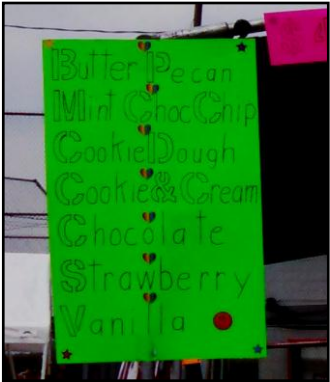 Butter Pecan
Mint ChocChip
CookieDough
Cookie&Cream
Chocolate
Strawberry
Vanilla